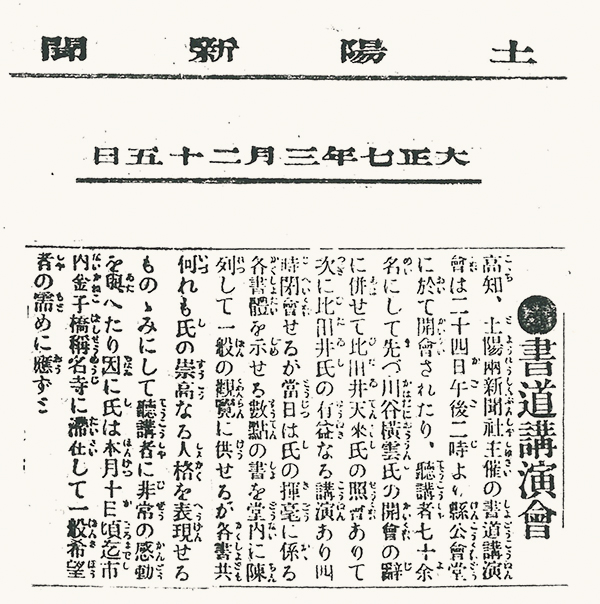 土陽新聞
大正七年三月二十五日
書道講演會
高知、土陽兩新聞社主催の書道講演
會は二十四日午後二時より縣公會堂
に於て開會されたり、聽講者七十余
名にして先づ川谷横雲氏の開會の辭
に併せて比田井天來氏の照會ありて
次に比田井氏の有益なる講演あり四
時閉會せるが當日は氏の揮毫に係る
各書體を示せる數點の書を堂内に陳
列して一般の觀覽に供せるが各書共
何れも氏の崇高なる人格を表現せる
ものゝみにして聽講者に非常の感動
を與へたり因に氏は本月十日頃迄市
内金子橋稱名寺に滯在して一般希望
者の需めに應ずと